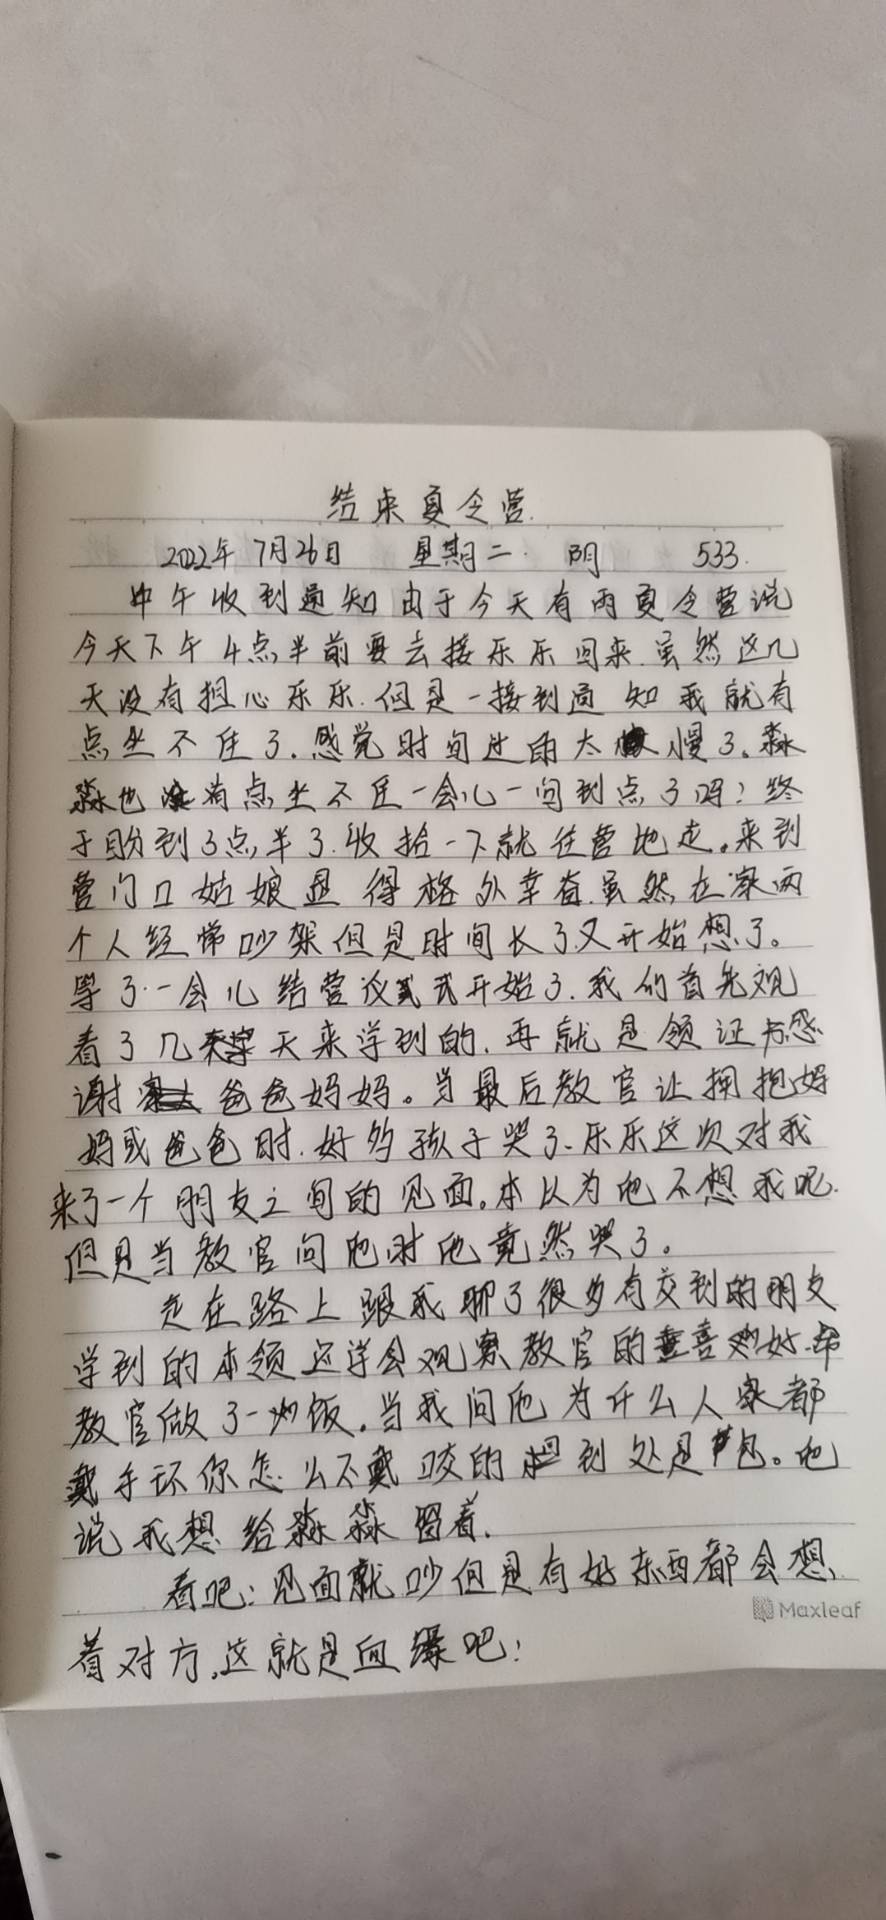 结束夏令营.
2022年7月26日 星期二. 阴 533.
中午收到通知由于今天有雨夏令营说
今天下午4点半前要去接乐乐回来.虽然这几
天没有担心乐乐.但是一接到通知我就有
点坐不住了.感觉时间过的太慢了。淼
淼也有点坐不住一会儿一问到点了吗?终
于盼到3点半了.收拾一下就往营地走。来到
营门口姑娘显得格外幸奋.虽然在家两
个人经常吵架但是时间长了又开始想了。
等了一会儿结营仪式开始了.我们首先观
看了几天来学到的.再就是领证书感
谢爸爸妈妈。当最后教官让拥抱妈
妈或爸爸时.好多孩子哭了.乐乐这次对我
来了一个朋友之间的见面。本以为他不想我呢.
但是当教官问他时他竟然哭了。
走在路上跟我聊了很多有交到的朋友
学到的本领还学会观察教官的喜好.给
教官做了一炒饭.当我问他为什么人家都
戴手环你怎么不戴咬的到处是包。他
说我想给淼淼留着.
看吧:见面就吵但是有好东西都会想
着对方.这就是血缘吧!
Maxleaf